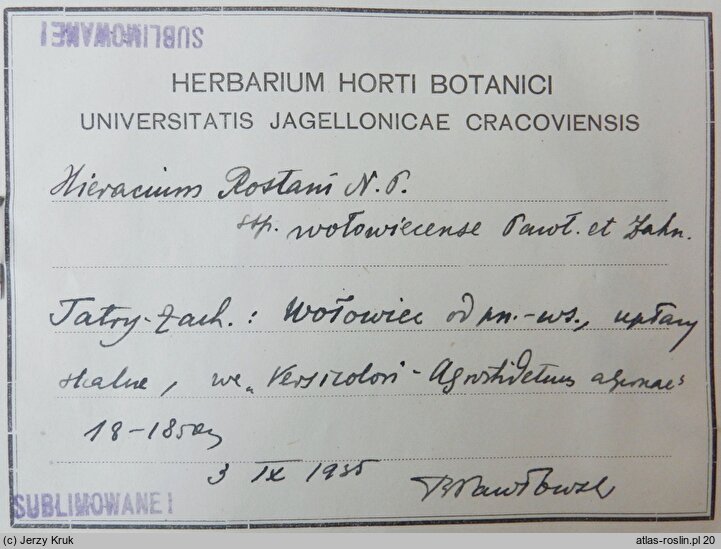 SUBLIMOWANE!
HERBARIUM HORTI BOTANICI
UNIVERSITATIS JAGELLONICAE CRACOVIENSIS
Hieracium Rostani N.P.
ssp. wołowiecense Pawł. et Zahn.
Tatry-Zach.: Wołowiec od pn.-ws., upłazy
skalne, we „Versicolori-Agrostidetum alpinae"
18-1850 m
3 IX 1935 B Pawłowski
SUBLIMOWANE!
(c) Jerzy Kruk atlas-roslin.pl 20